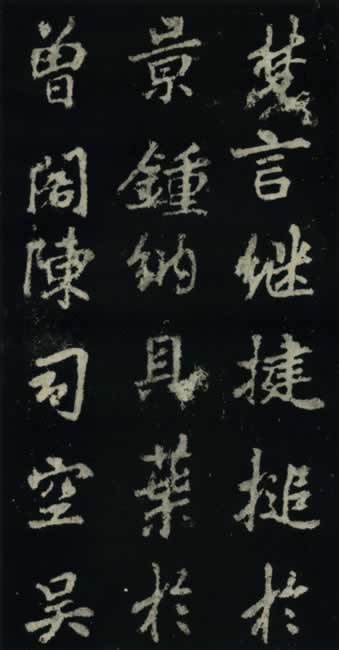 梵言継揵搥於
景鍾納貝葉於
曾閣陳司空吴